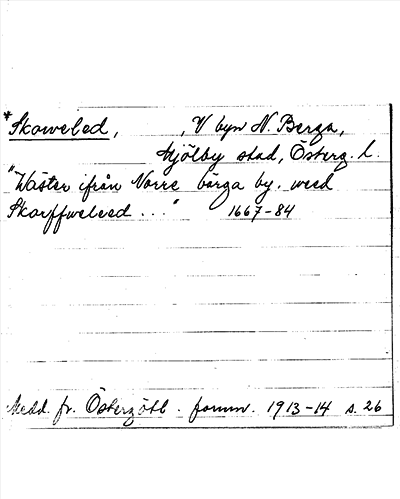 *Skoweled, , V byn N. Berga,
Mjölby stad, Österg. l.
"Wäster ifrån Norre bärga by. weed
Skorffweleed ..." 1667-84
Medd. fr. Östergötl. fornm. 1913-14 s. 26